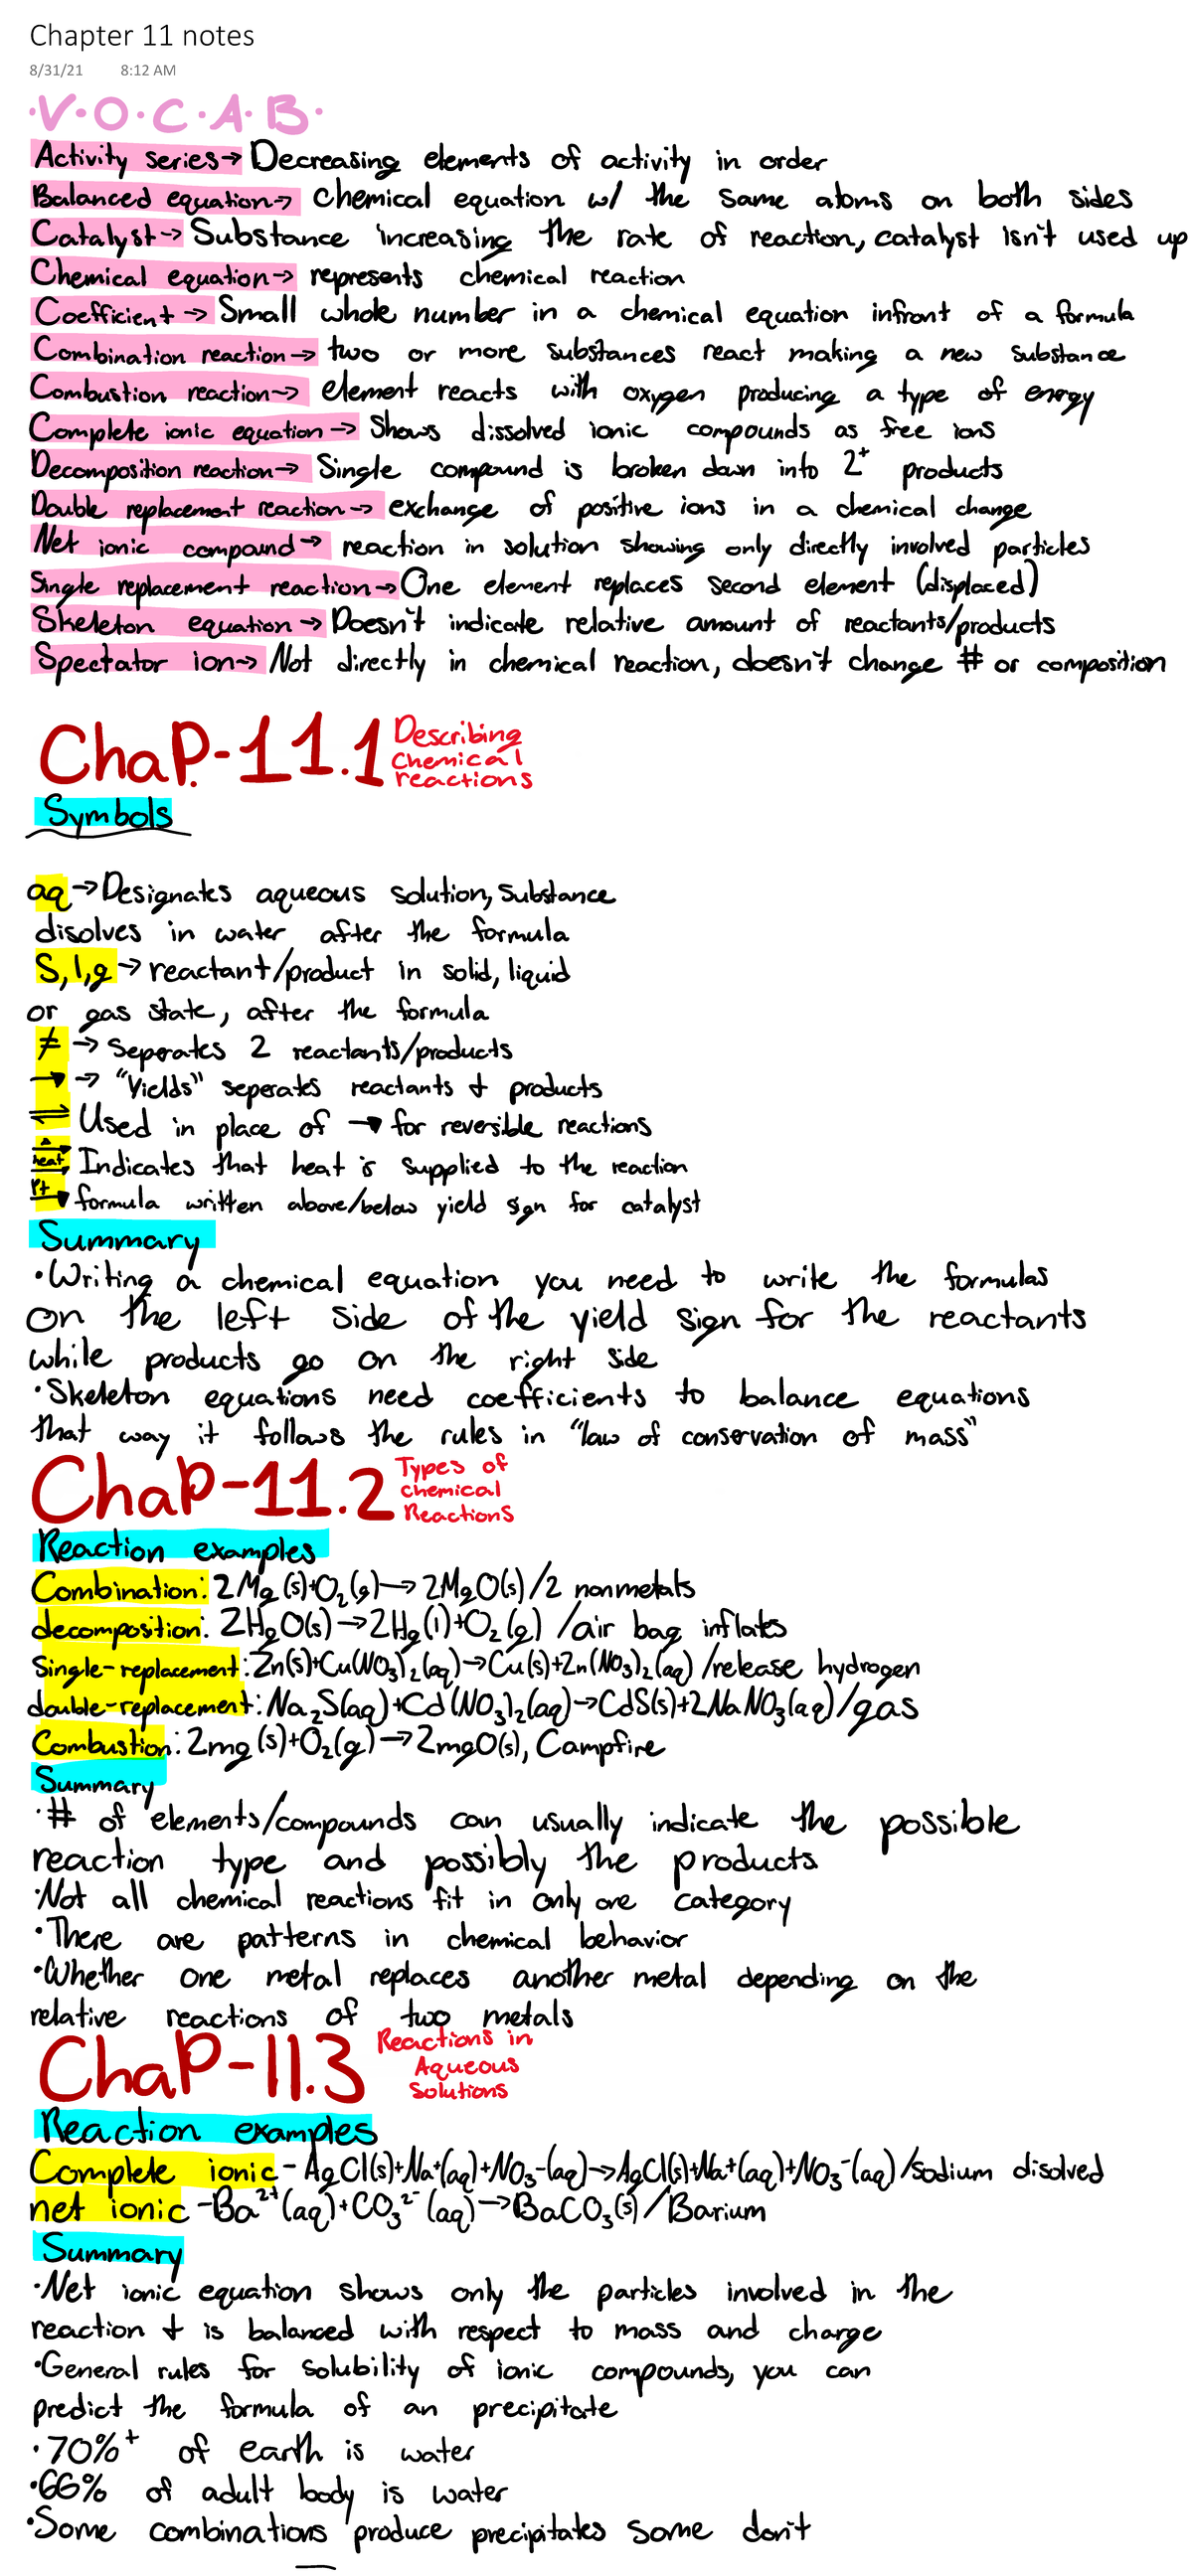 Chapter 11 notes
8/31/21 8:12 AM
·V·O·C·A·B·
Activity series→ Decreasing elements of activity in order
Balanced equation→ chemical equation w/ the same atoms on both sides
Catalyst→ Substance increasing the rate of reaction, catalyst isn't used up
Chemical equation→ represents chemical reaction
Coefficient→ Small whole number in a chemical equation infront of a formula
Combination reaction→ two or more substances react making a new substance
Combustion reaction→ element reacts with oxygen producing a type of energy
Complete ionic equation→ Shows dissolved ionic compounds as free ions
Decomposition reaction→ Single compound is broken down into 2⁺ products
Double replacement reaction→ exchange of positive ions in a chemical change
Net ionic compound→ reaction in solution showing only directly involved particles
Single replacement reaction→ One element replaces second element (displaced)
Skeleton equation→ Doesn't indicate relative amount of reactants/products
Spectator ion→ Not directly in chemical reaction, doesn't change # or composition
Chap.-11.1 Describing
chemical
reactions
Symbols
aq→ Designates aqueous solution, substance
disolves in water after the formula
S,l,g→ reactant/product in solid, liquid
or gas state, after the formula
≠ → Seperates 2 reactants/products
→ → "Yields" seperates reactants + products
⇌ Used in place of → for reversible reactions
Δ→ heat→ Indicates that heat is supplied to the reaction
Pt→ formula written above/below yield sign for catalyst
Summary
·Writing a chemical equation you need to write the formulas
on the left side of the yield sign for the reactants
while products go on the right side
·Skeleton equations need coefficients to balance equations
that way it follows the rules in "law of conservation of mass"
Chap-11.2 Types of
chemical
Reactions
Reaction examples
Combination: 2Mg(s)+O₂(g)→2MgO(s)/2 nonmetals
decomposition: 2HgO(s)→2Hg(l)+O₂(g) /air bag inflates
Single-replacement: Zn(s)+Cu(NO₃)₂(aq)→Cu(s)+Zn(NO₃)₂(aq) /release hydrogen
double-replacement: Na₂S(aq)+Cd(NO₃)₂(aq)→CdS(s)+2NaNO₃(aq)/gas
Combustion: 2mg(s)+O₂(g)→2mgO(s), Campfire
Summary
·# of elements/compounds can usually indicate the possible
reaction type and possibly the products
·Not all chemical reactions fit in only one category
·There are patterns in chemical behavior
·Whether one metal replaces another metal depending on the
relative reactions of two metals
Chap-11.3 Reactions in
Aqueous
Solutions
Reaction examples
Complete ionic-AgCl(s)+Na⁺(aq)+NO₃-(aq)→AgCl(s)+Na⁺(aq)+NO₃⁻(aq)/sodium disolved
net ionic-Ba²⁺(aq)+CO₃²⁻(aq)→BaCO₃(s)/Barium
Summary
·Net ionic equation shows only the particles involved in the
reaction + is balanced with respect to mass and charge
·General rules for solubility of ionic compounds, you can
predict the formula of an precipitate
·70%⁺ of earth is water
·66% of adult body is water
·Some combinations produce precipitates some don't